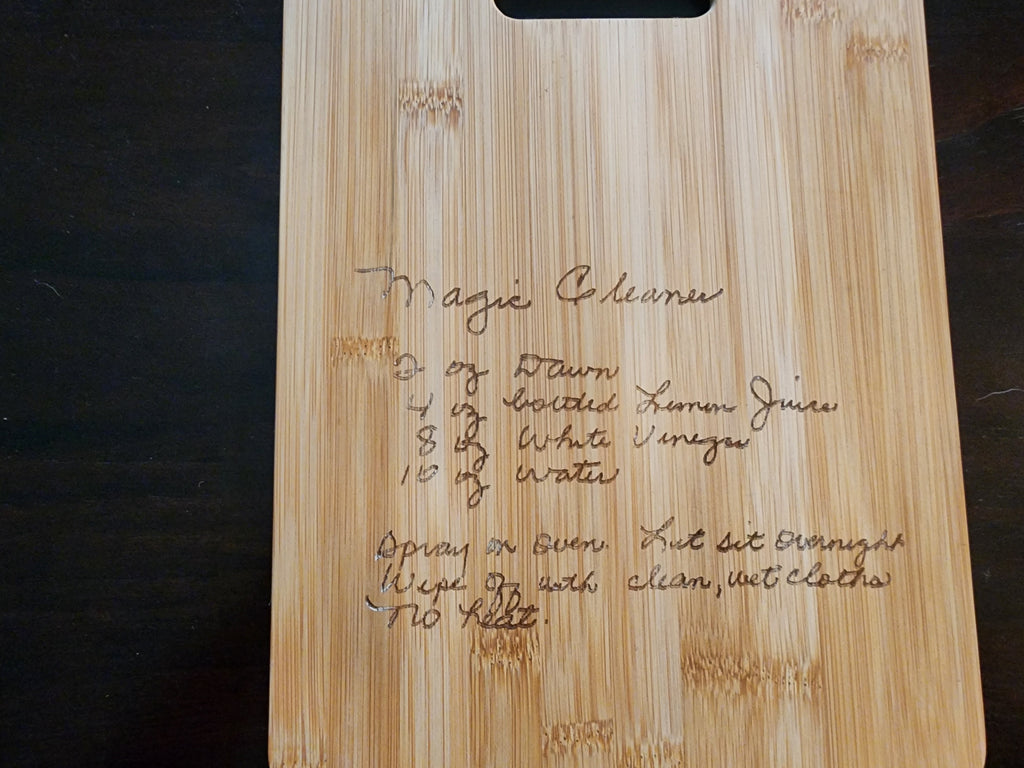 Magic Cleaner
2 oz Dawn
4 oz bottled Lemon Juice
8 oz White Vinegar
10 oz Water
Spray on oven. Let sit overnight
Wipe off with clean, wet cloths
No heat.